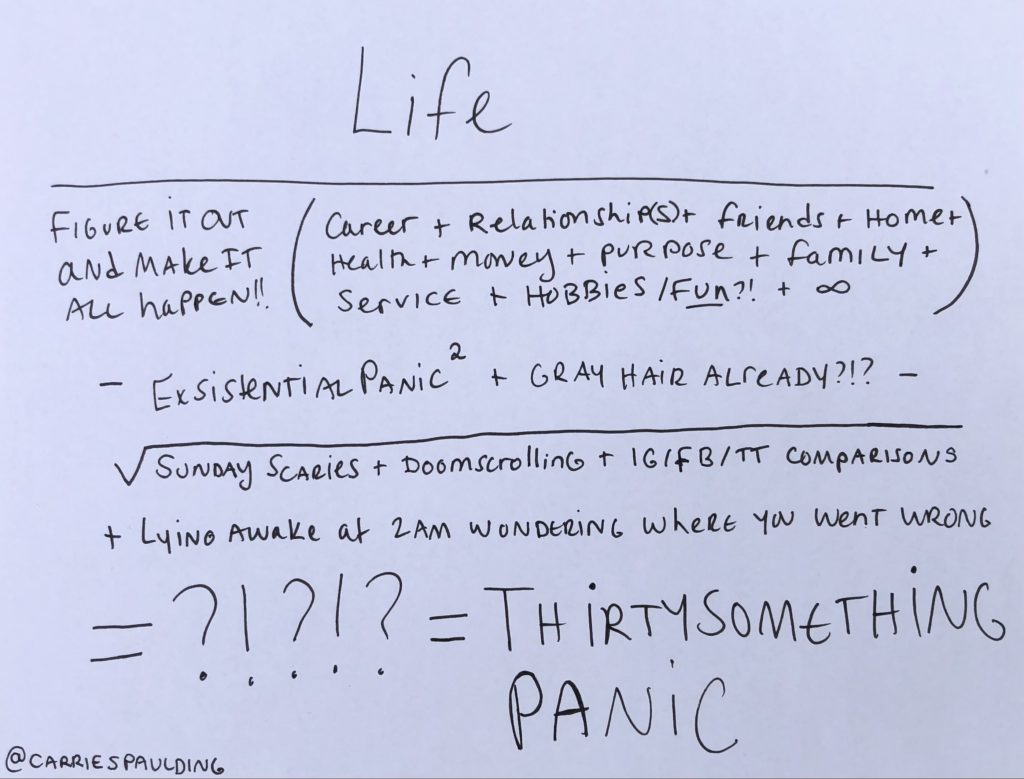 Life
FIGURE IT OUT
AND MAKE IT
ALL HAPPEN!!
(Career + Relationship(s) + friends + Home +
Health + money + purpose + family +
Service + Hobbies / Fun?! + ∞)
- Exsistential Panic² + GRAY HAIR ALREADY?!? -
√SUNDAY SCARIES + DOOMSCROLLING + IG/FB/TT COMPARISONS
+ Lying Awake at 2AM WONDERING WHERE YOU WENT WRONG
= ?!?!? = THIRTYSOMETHING
PANIC
@CARRIESPAULDING